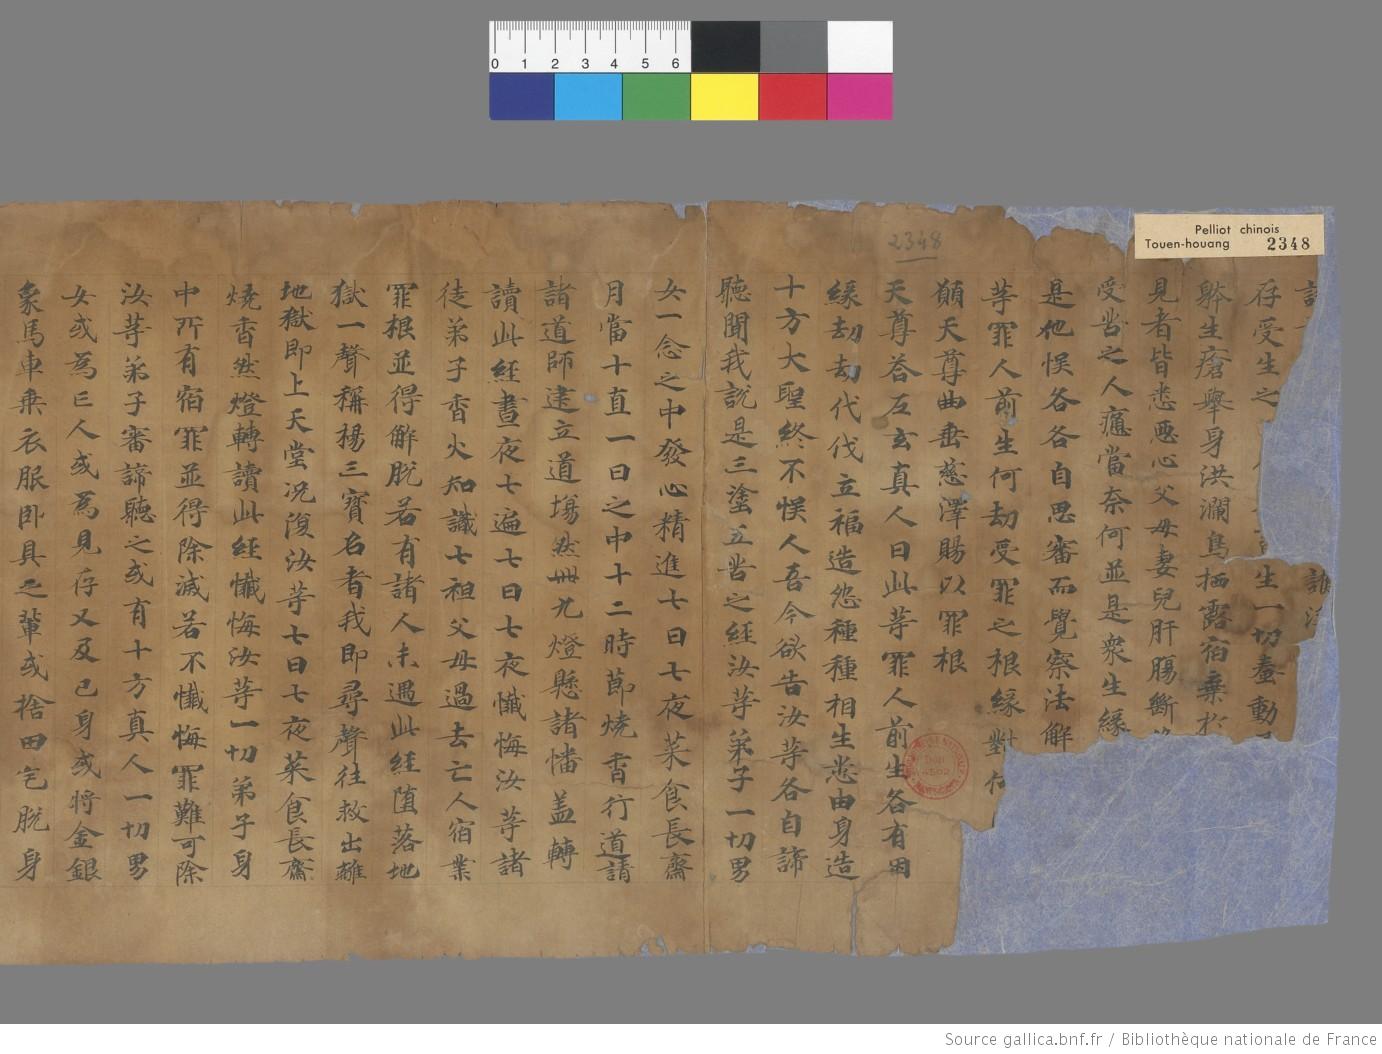 0 1 2 3 4 5 6
Pelliot chinois
Touen-houang 2348
2348
誰
存受生之 生一切蠢動
躰生瘡舉身洪瀾鳥栖露宿棄於
見者皆悉惡心父母妻兒肝腸斷
受苦之人痛當奈何並是衆生緣
是他悮各各自思審而覺察法解
等罪人前生何劫受罪之根緣對何
願天尊曲垂慈澤賜以罪根
天尊荅左玄真人曰此等罪人前生各有因
緣劫劫代代立福造怨種種相生悉由身造
十方大聖終不悮人吾今欲告汝等各自諦
聽聞我說是三塗五苦之經汝等弟子一切男
女一念之中發心精進七日七夜菜食長齋
月當十直一日之中十二時節燒香行道請
諸道師建立道場然卌九燈懸諸幡盖轉
讀此經晝夜七遍七日七夜懺悔汝等諸
徒弟子香火知識七祖父母過去亡人宿業
罪根並得解脫若有諸人未遇此經墮落地
獄一聲稱揚三寶名者我即尋聲往救出離
地獄即上天堂况復汝等七日七夜菜食長齋
燒香然燈轉讀此經懺悔汝等一切弟子身
中所有宿罪並得除滅若不懺悔罪難可除
汝等弟子審諦聽之或有十方真人一切男
女或為亡人或為見存又及己身或將金銀
象馬車乘衣服卧具之輩或捨田宅脫身
Source gallica.bnf.fr / Bibliothèque nationale de France